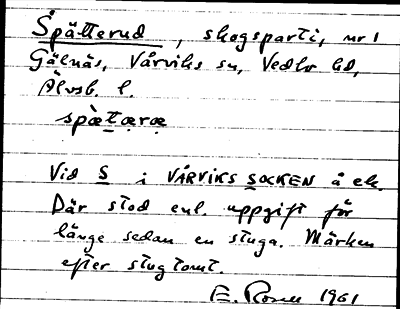 Spätterud, skogsparti, nr 1
Gälnäs, Vårviks sn, Vedbo hd,
Älvsb. l.
spæ̀tæræ
Vid S i VÅRVIKS SOCKEN å ek.
Där stod enl. uppgift för
länge sedan en stuga. Märken
efter stugtomt.
E. Rosell 1961